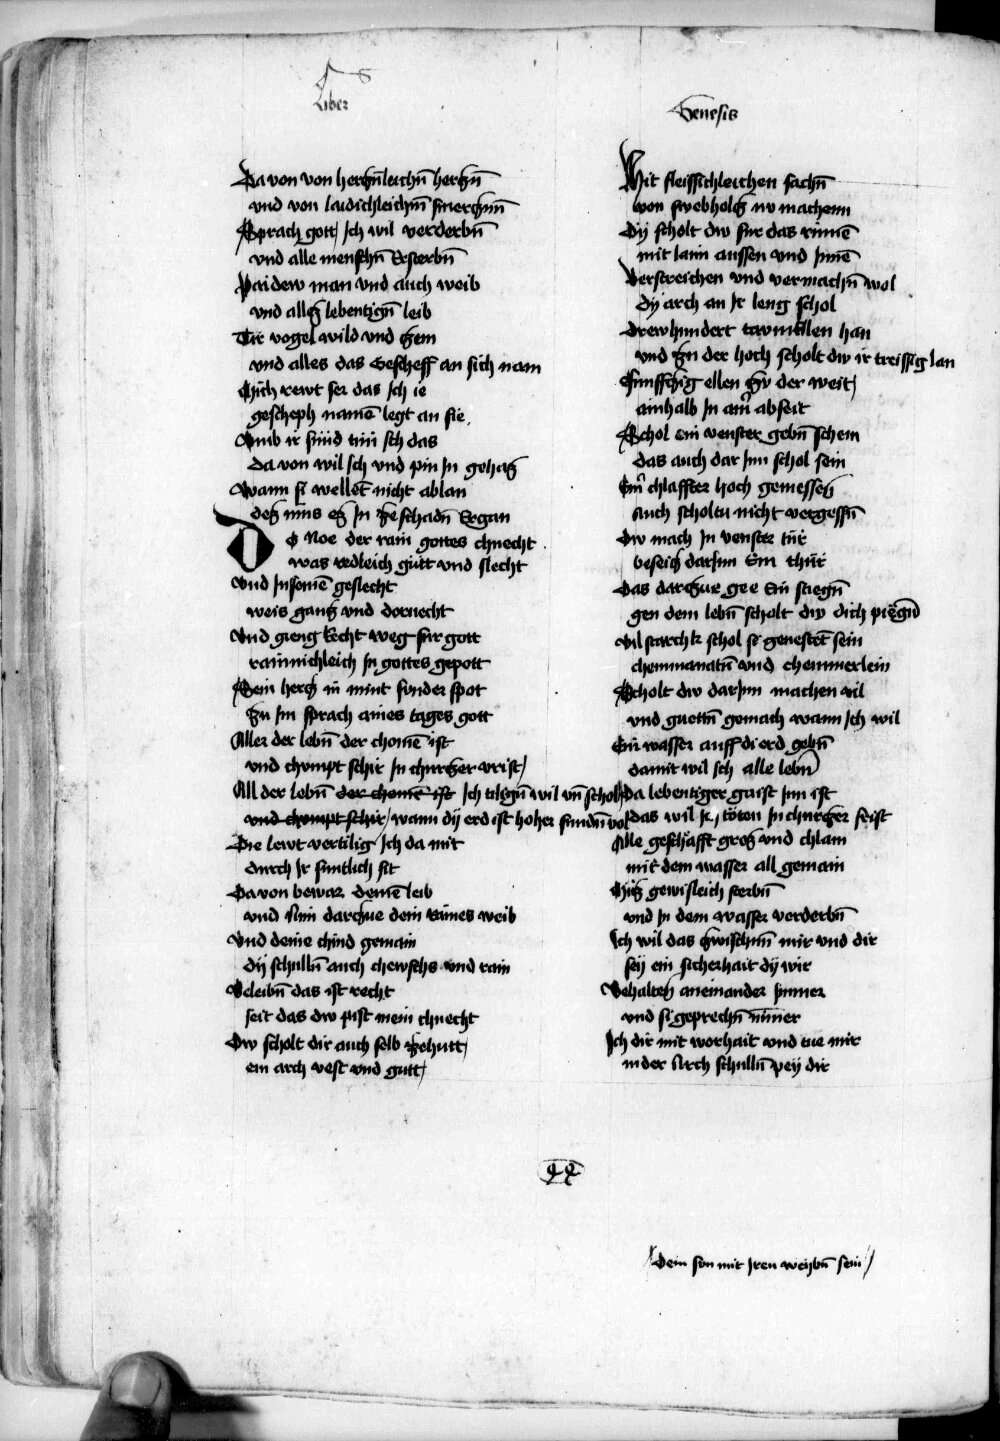 Liber
Genesis
Da von von herczleichn̄ herczn̄
vnd von laidichleichn̄ smerczn̄
Sprach gott / Ich wil verderbn̄
vnd alle menschn̄ Ersterbn̄
Paidew man vnd auch weib
vnd allez lebentign̄ leib
Tir vogel wild vnd czem
vnd alles das Gescheff an sich nam
Mich rewt ser das Ich ie
gescheph namē legt an sie
Vmb ir sünd tün ich das
Da von wil Ich vnd pin In gehaz
Wann si wellēt nicht ablan
dez mus ez In ze schadn̄ Ergan
DO Noe der rain gottes chnecht
was redleich gütt vnd slecht
Vnd In seinē geslecht
weis gancz vnd dornecht
Vnd gieng Recht weg fur gott
rainnichleich In gottes gepott
Sein hercz in mint sunder spot
Zu Im sprach aines tages gott
Aller der lebn̄ der chomē ist
vnd chvmpt schir In churczer vrist /
All der lebn̄ der chomē ist Ich tilign̄ wil vn̄ schol
vnd chvmpt schir / wann dy erd ist hoher sundn̄ vol
Die lewt vertilig Ich da mit
durch Ir suntlich sit
Da von bewar deinē leib
vnd Nim darczue dein raines weib
Vnd deine chind gemain
dy schulln̄ auch chewschs vnd rain
Beleibn̄ das ist recht
seit das dw pist mein chnecht
Dw scholt dir auch selb zehutt /
ein arch vest vnd gutt /
Mit fleissichleichen sachn̄
von swebholcz nv machenn
Dy scholt dw fur das rinnē
mit laim aussen vnd Innē
Verstreichen vnd vermachn̄ wol
dy arch an Ir leng schol
Drewhundert ellen han
vnd zu der hoch scholt dw ir treissig lan
Funffczig ellen zu der weit /
ainhalb In abseit
Schol ein venster gebn̄ schein
das auch dar Inn schol sein
chlaffter hoch gemessen
Auch scholtu nicht vergessn̄
Dw mach In venster tür
beseicz dar Inn Ein thür
Das darczue gee Ein stiegn̄
gen dem lebn̄ scholt dw dich
Vil starch schol si genestet sein
chemmanatn̄ vnd chemmerlein
Scholt dw dar Inn machen vil
vnd guettn̄ gemach wann Ich wil
Ein wasser auff di erd gebn̄
damit wil Ich alle lebn̄
/ Da lebentiger gaist Inn ist
/ das wil Ich töten In churczer frist
Alle geschafft gros vnd chlain
mit dem wasser all gemain
Müz gewisleich sterbn̄
vnd In dem wasser verderbn̄
Ich wil das zwischnn̄ mir vnd dir
sey ein sicherhait dy wir
Behalten aneinander Immer
vnd si geprechn̄ nimer
Ich dir mit worhait vnd tue mir
In der Arch schulln̄ pey dir
/ dein sun mit Iren weybn̄ sein /